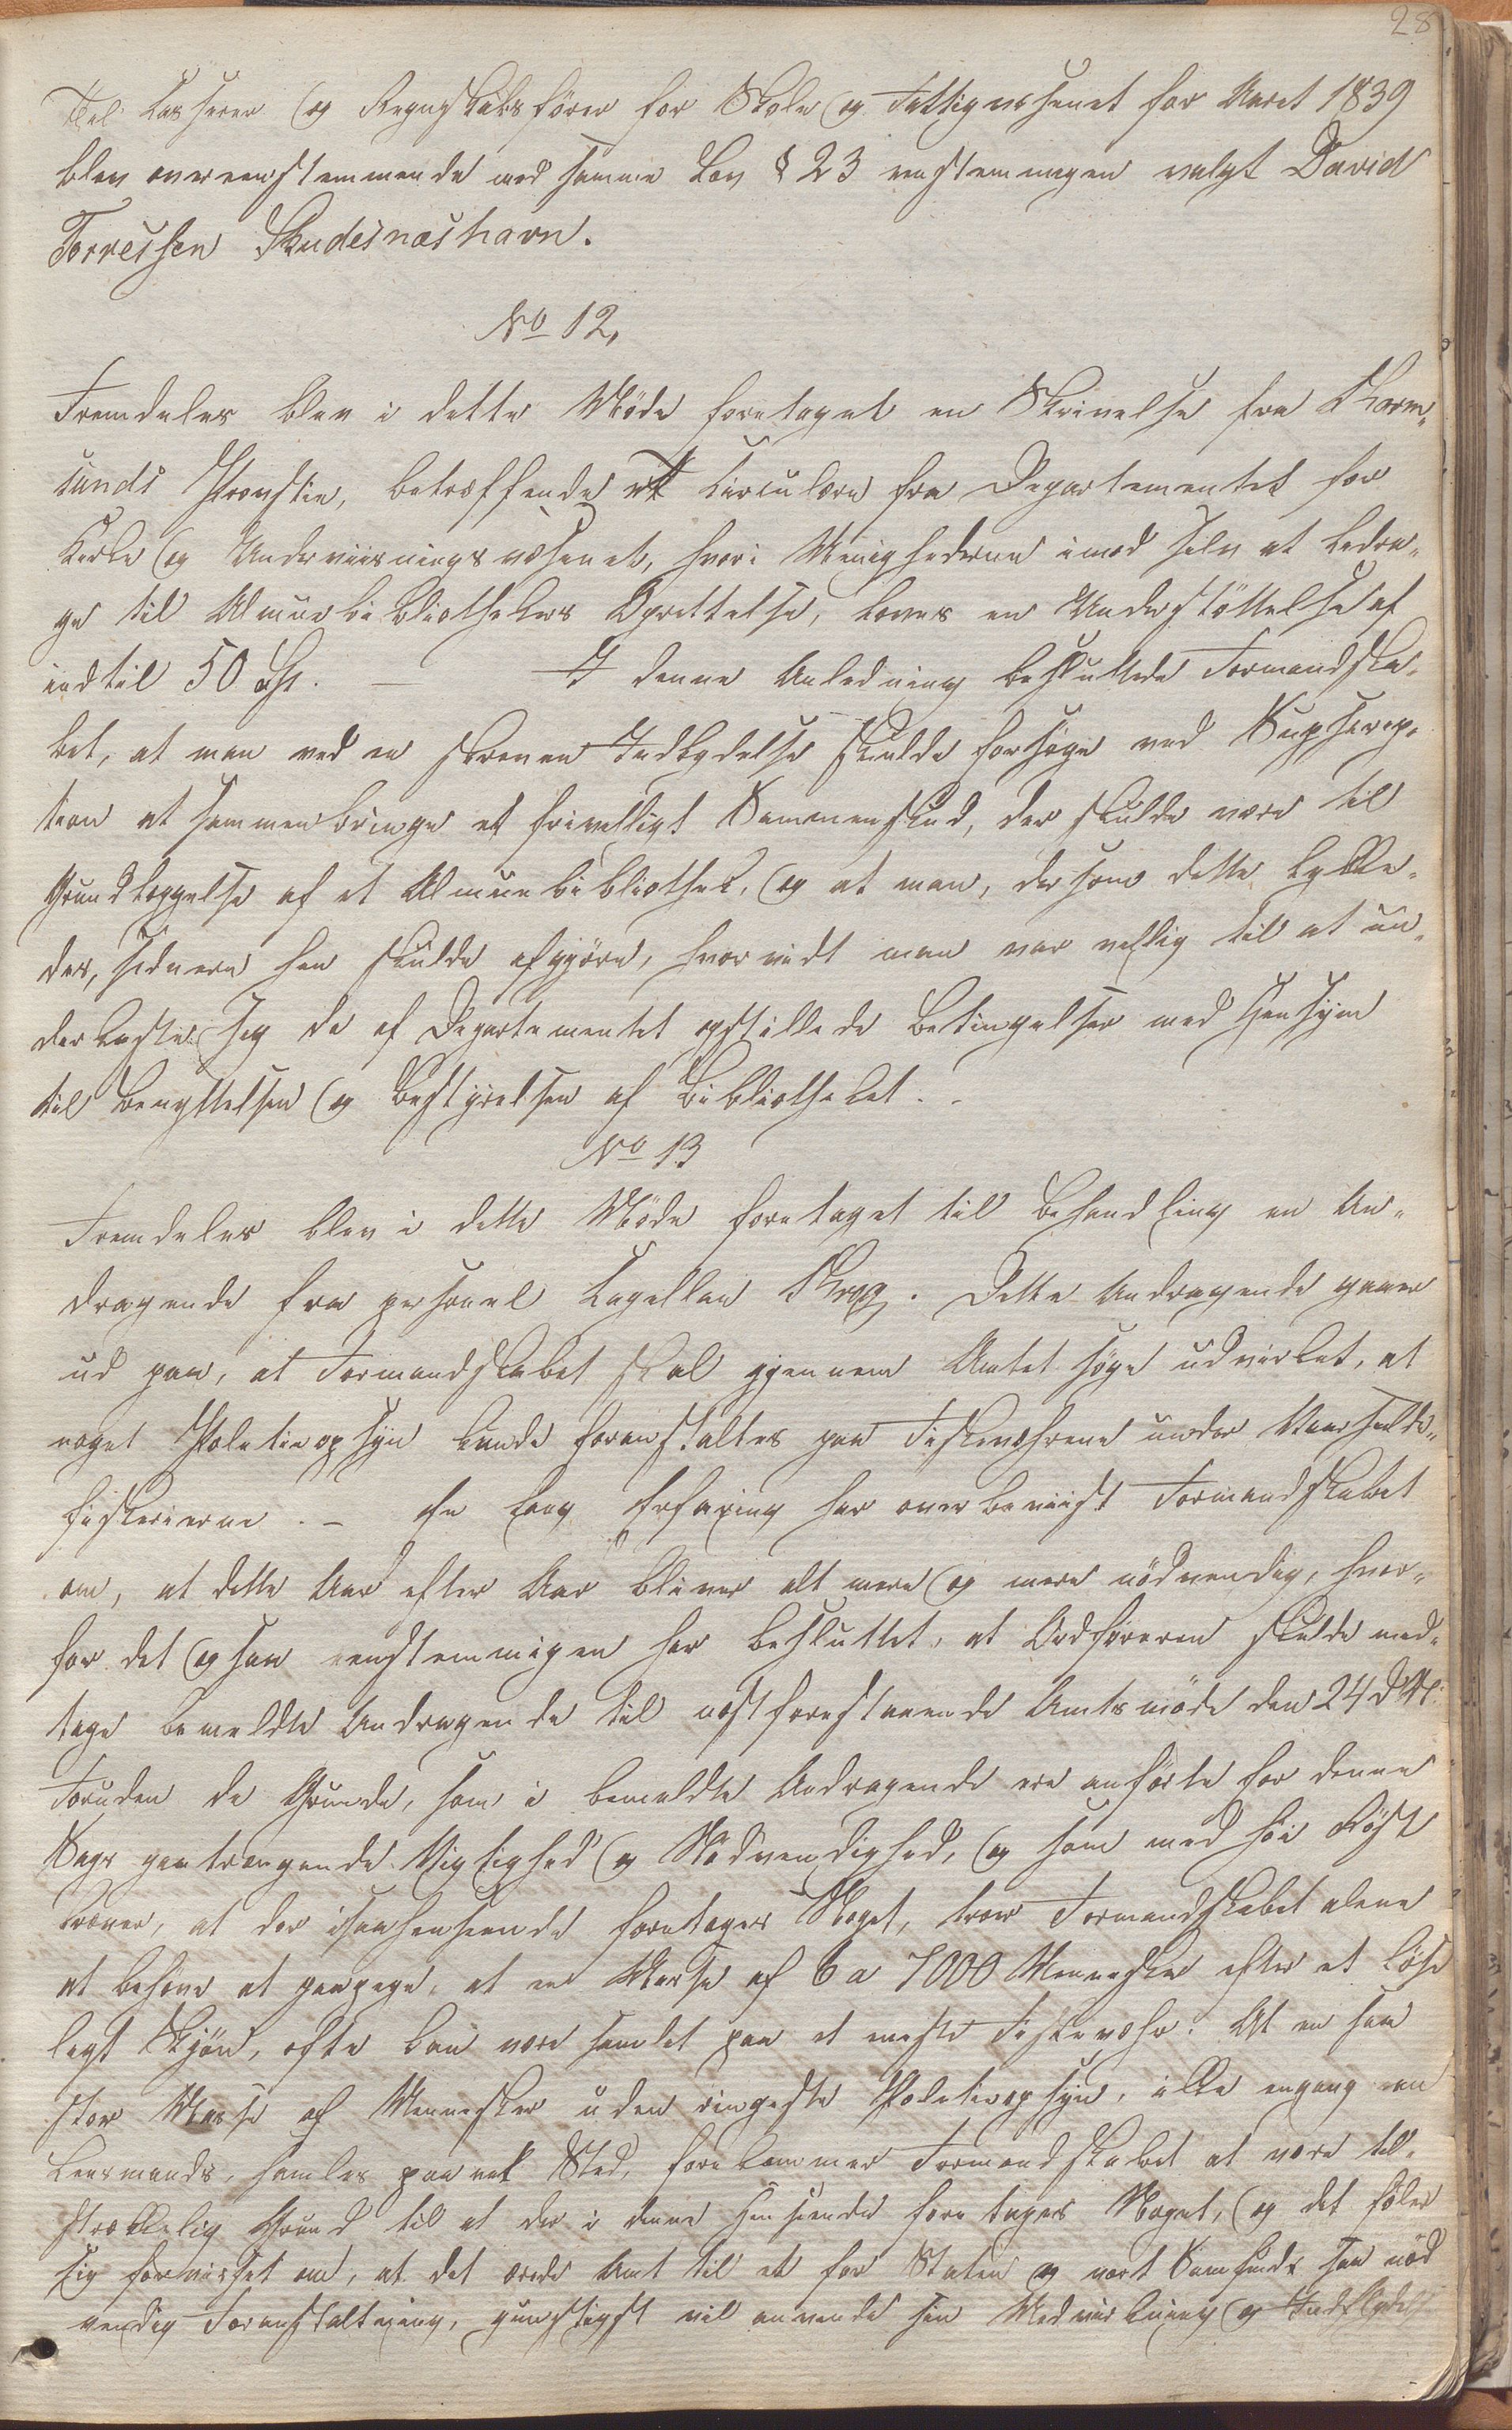 28
Til Casserer og Regnskabsfører for Skole og Fattigvæsenet for Aaret 1839
blev overeenstemmende med samme Lov § 23 eenstemmigen valgt David
Torressen Skudesnæshavn.
No 12,
Fremdeles blev i dette Møde foretaget en Skrivelse fra Karm-
sunds Provstie, betræffende et Circulære fra Departementet for
Kirke og Underviisningsvæsenet, hvori Menighederne imod selv at bedra-
ge til Almuebibliothekers Oprettelse, loves en Understøttelse af
indtil 50 Sp. — I denne Anledning besluttede Formandska-
bet, at man ved en skreven Indbydelse skulde forsøge ved Supscrip-
tion at sammenbringe et frivilligt Sammenskud, der skulde være til
Grundlæggelse af et Almuebibliothek, og at man, dersom dette lykke-
des, sidnere hen skulde afgjøre, hvorvidt man var villig til at un-
derkaste sig de af Departementet opstillede Betingelser med Hensyn
til Benyttelsen og Bestyrelsen af Bibliotheket. -
No 13
Fremdeles blev i dette Møde foretaget til Behandling en An-
dragende fra personel Capellan Krog. Dette Andragende gaaer
ud paa, at Formandskabet skal gjennem Amtet søge udvirket, at
noget Politieopsyn kunde foranstaltes paa Fiskeværene under Vaarsilde-
fiskerierne. — En lang Erfaring har overbeviist Formandskabet
om, at dette Aar efter Aar bliver alt mere og mere nødvendig, hvor-
for det ogsaa eenstemmigen har besluttet, at Ordføreren skulde med-
tage bemeldte Andragende til næstforestaaende Amtsmøde den 24 d. M:
Foruden de Grunde, som i bemeldte Andragende ere anførte for denne
Sags gjentrængende Vigtighed og Nødvendighed, og som med høi Røst
kræver, at der isaahenseende foretages Noget, troer Formandskabet alene
at behøve at paapege, at en Masse af 6 a 7000 Mennesker efter et løse-
ligt Skjøn, ofte kan være samlet paa et eneste Fiskevær. At en saa
stor Masse af Mennesker uden ringeste Politieopsyn, ikke engang en
Lensmands, samles paa et Sted, forekommer Formandskabet at være til-
strækkelig Grund til at der i denne Henseende foretages Noget, og det føler
sig forvisset om, at det ærede Amt til et for Staten og vort Samfund saa nød
vendig Foranstaltning, gunstigst vil anvende sin Medvirkning og Indflydelse